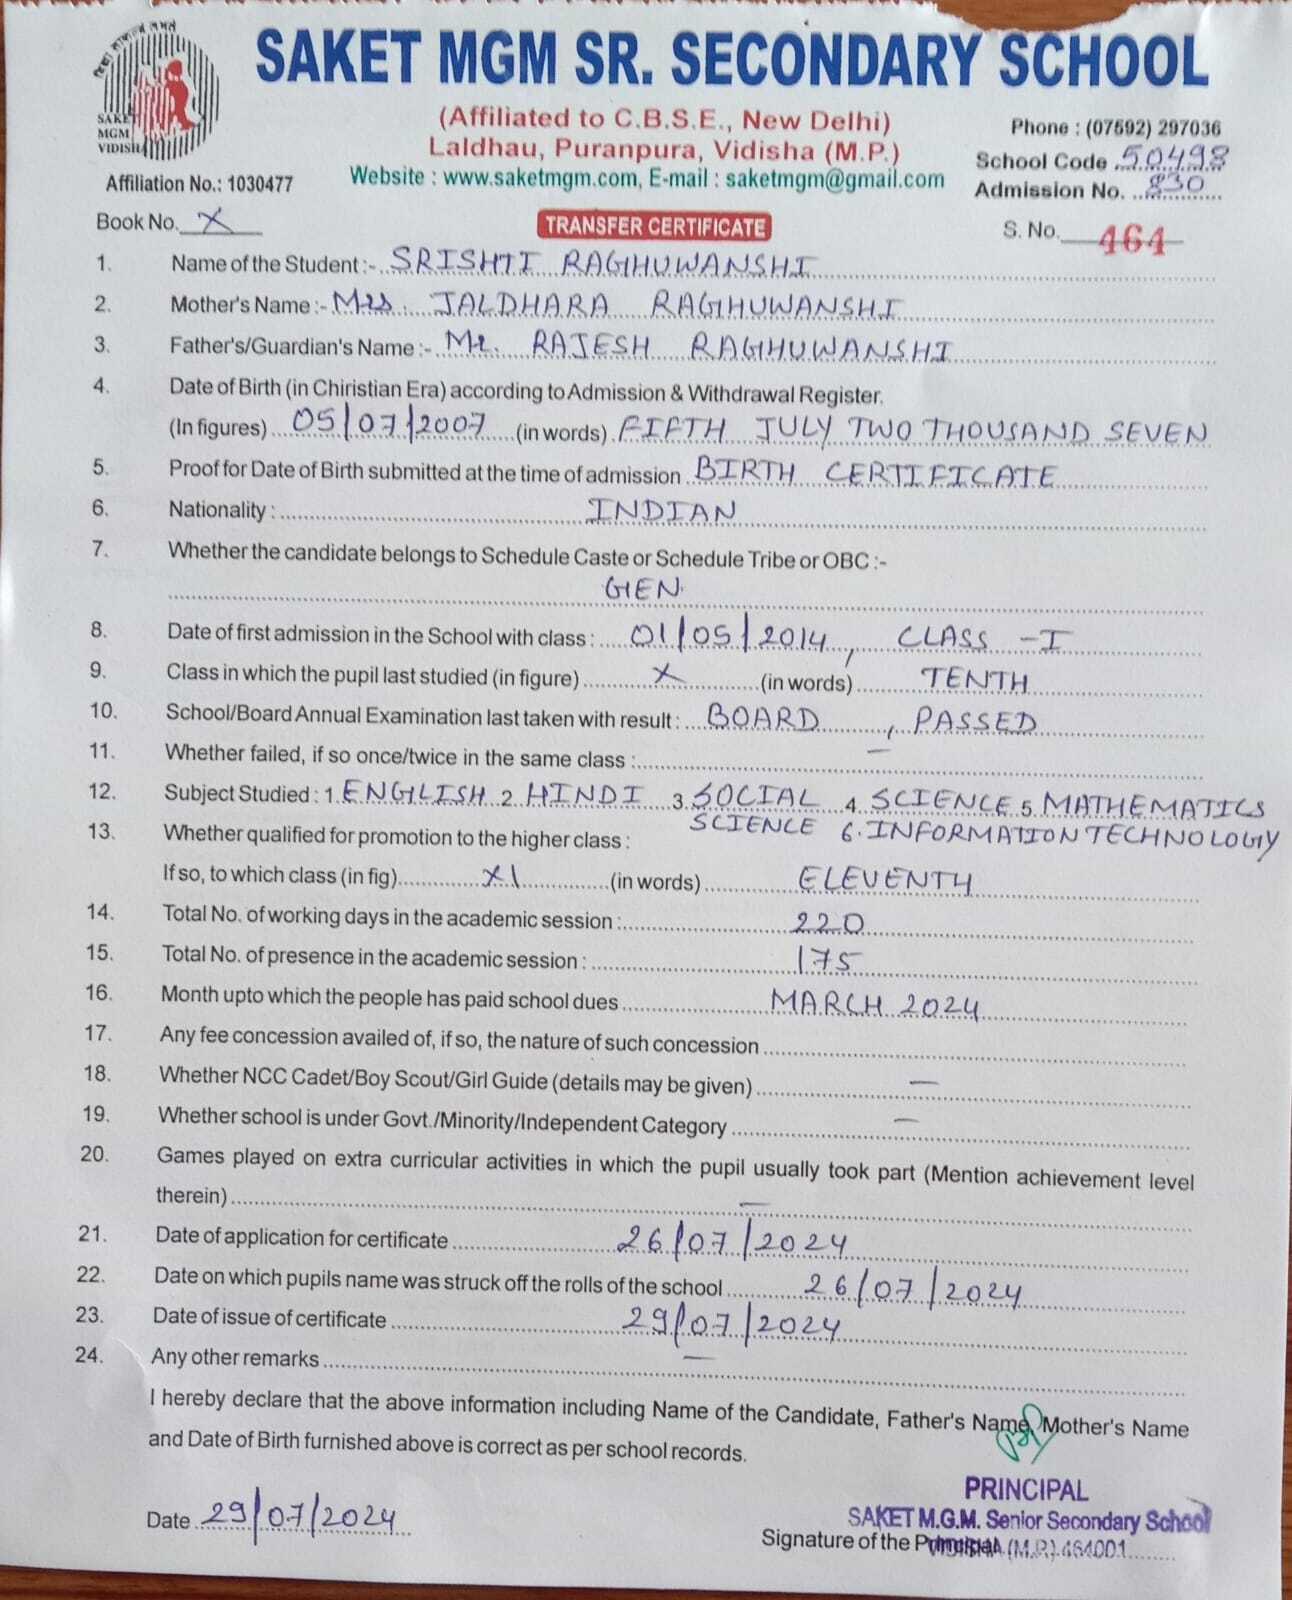 SAKET MGM SR. SECONDARY SCHOOL
SAKET
MGM
VIDISHA
(Affiliated to C.B.S.E., New Delhi)
Laldhau, Puranpura, Vidisha (M.P.)
Website : www.saketmgm.com, E-mail : saketmgm@gmail.com
Phone : (07592) 297036
School Code 50498
Admission No. 830
Affiliation No.: 1030477
Book No. X
TRANSFER CERTIFICATE
S. No. 464
1. Name of the Student :- SRISHTI RAGHUWANSHI
2. Mother's Name :- Mrs. JALDHARA RAGHUWANSHI
3. Father's/Guardian's Name :- Mr. RAJESH RAGHUWANSHI
4. Date of Birth (in Chiristian Era) according to Admission & Withdrawal Register.
(In figures) 05/07/2007 (in words) FIFTH JULY TWO THOUSAND SEVEN
5. Proof for Date of Birth submitted at the time of admission BIRTH CERTIFICATE
6. Nationality : INDIAN
7. Whether the candidate belongs to Schedule Caste or Schedule Tribe or OBC :-
GEN.
8. Date of first admission in the School with class : 01/05/2014, CLASS -I
9. Class in which the pupil last studied (in figure) X (in words) TENTH
10. School/Board Annual Examination last taken with result : BOARD, PASSED
11. Whether failed, if so once/twice in the same class : —
12. Subject Studied : 1. ENGLISH 2. HINDI 3. SOCIAL 4. SCIENCE 5. MATHEMATICS
SCIENCE 6. INFORMATION TECHNOLOGY
13. Whether qualified for promotion to the higher class :
If so, to which class (in fig) XI (in words) ELEVENTH
14. Total No. of working days in the academic session : 220
15. Total No. of presence in the academic session : 175
16. Month upto which the people has paid school dues MARCH 2024
17. Any fee concession availed of, if so, the nature of such concession
18. Whether NCC Cadet/Boy Scout/Girl Guide (details may be given) —
19. Whether school is under Govt./Minority/Independent Category —
20. Games played on extra curricular activities in which the pupil usually took part (Mention achievement level
therein) —
21. Date of application for certificate 26/07/2024
22. Date on which pupils name was struck off the rolls of the school 26/07/2024
23. Date of issue of certificate 29/07/2024
24. Any other remarks —
I hereby declare that the above information including Name of the Candidate, Father's Name, Mother's Name
and Date of Birth furnished above is correct as per school records.
PRINCIPAL
SAKET M.G.M. Senior Secondary School
VIDISHA (M.P.) 464001
Date 29/07/2024
Signature of the Principal